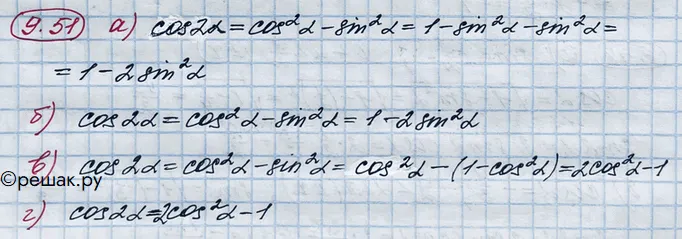 9.51 а) cos2α = cos²α - sin²α = 1 - sin²α - sin²α =
= 1 - 2 sin²α
б) cos2α = cos²α - sin²α = 1 - 2 sin²α
в) cos2α = cos²α - sin²α = cos²α - (1 - cos²α) = 2cos²α - 1
©решак.ру
г) cos2α = 2cos²α - 1